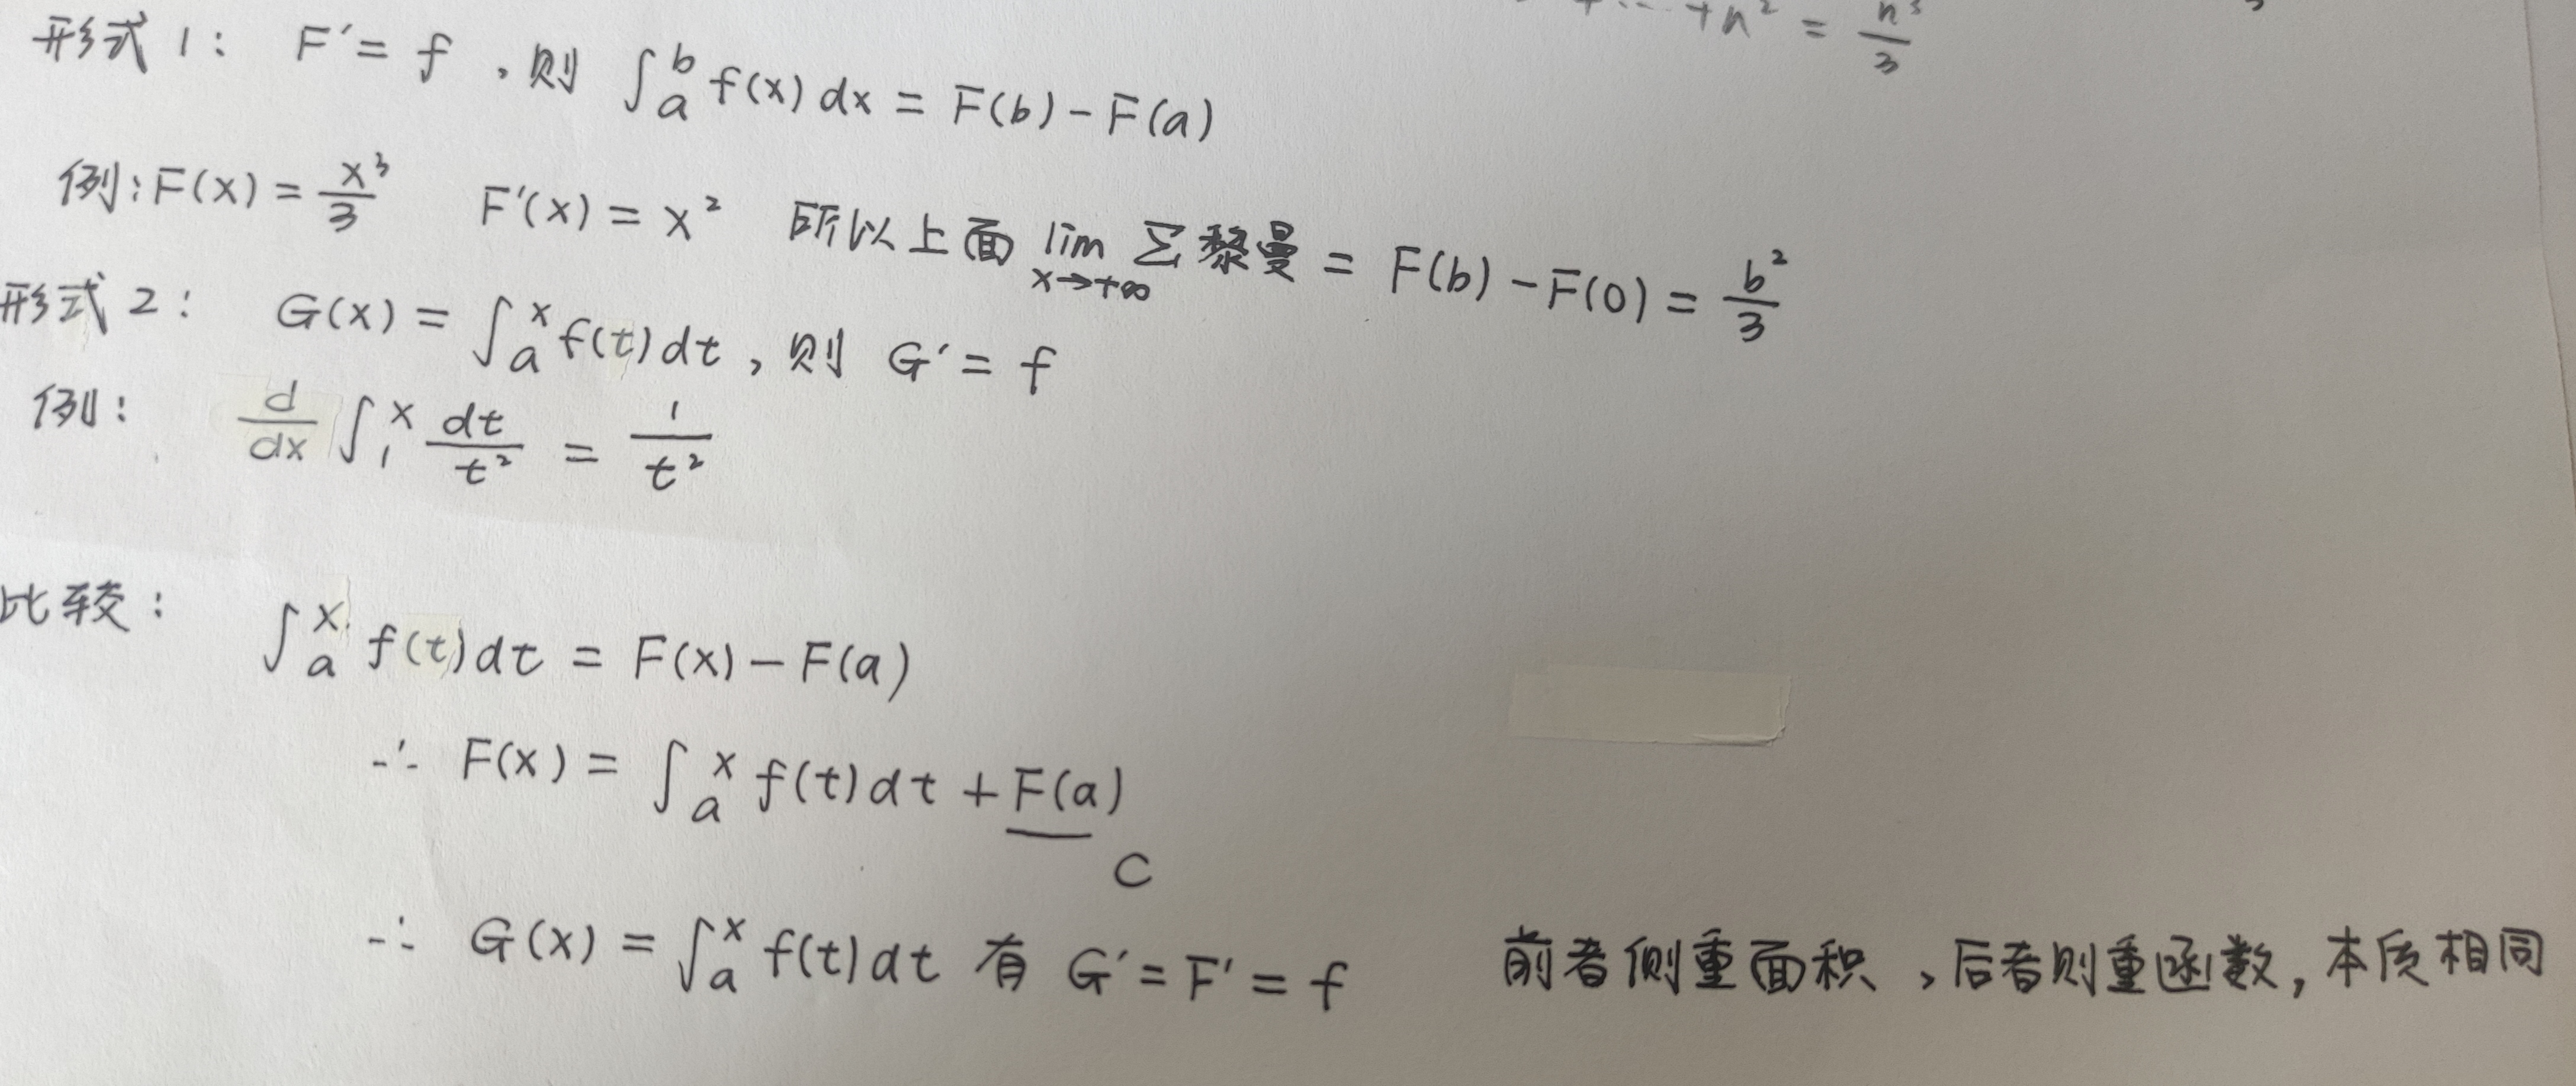 +n² = n³/3
形式1: F′= f ,则 ∫ₐᵇ f(x)dx = F(b)-F(a)
例:F(x)= x³/3 F′(x)= x² 所以上面 lim x→+∞ Σ黎曼 = F(b)-F(0)= b²/3
形式2: G(x)= ∫ₐˣ f(t)dt, 则 G′= f
例: d/dx ∫₁ˣ dt/t² = 1/t²
比较: ∫ₐˣ f(t)dt = F(x)-F(a)
∴ F(x)= ∫ₐˣ f(t)dt + F(a)
C
∴ G(x)= ∫ₐˣ f(t)dt 有 G′= F′= f 前者侧重面积,后者则重函数,本质相同